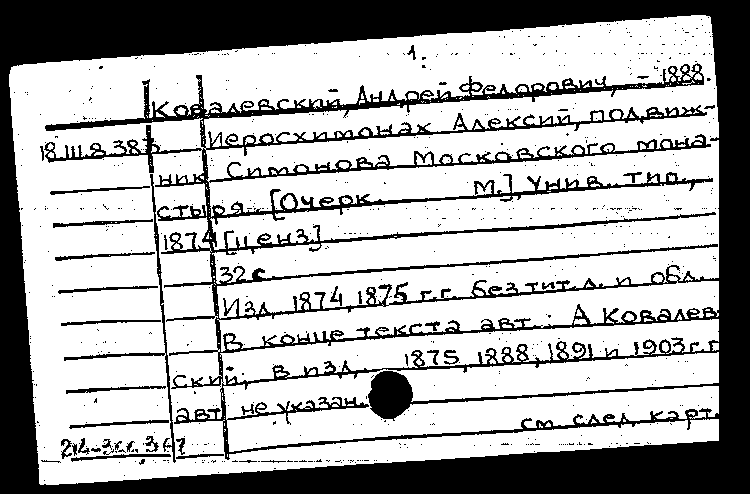 1.
Ковалевский, Андрей Федорович, – 1888.
18.III.8.383. Иеросхимонах Алексий, подвиж-
ник Симонова Московского мона-
стыря. [Очерк. М.], Унив. тип.,
1874 [ценз.]
32 с.
Изд. 1874, 1875 г.г. без тит. л. и обл.
В конце текста авт.: А Ковалев-
ский; в изд. 1875, 1888, 1891 и 1903 г.г
авт. не указан.
см. след. карт.